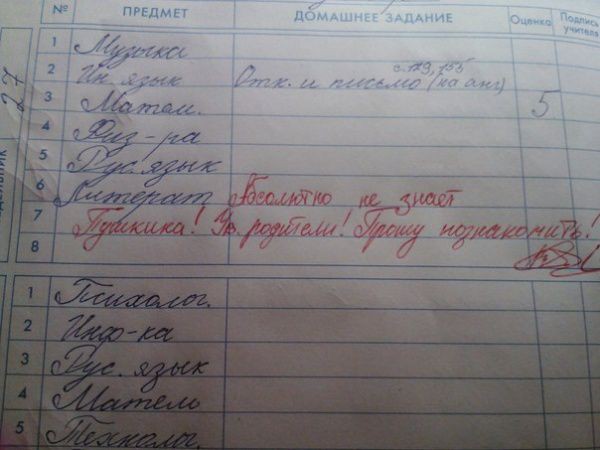 № ПРЕДМЕТ ДОМАШНЕЕ ЗАДАНИЕ Оценка Подпись учителя
27
недельник
1 Музыка
с. 129, 155
2 Ин. язык Отк. и письмо (на анг)
3 Матем. 5
4 Физ-ра
5 Рус. язык
6 Литерат Абсолютно не знает
7 Пушкина! Ув. родители! Прошу познакомить!
8
1 Психолог.
2 Инф-ка
3 Рус. язык
4 Матем
5 Технолог.